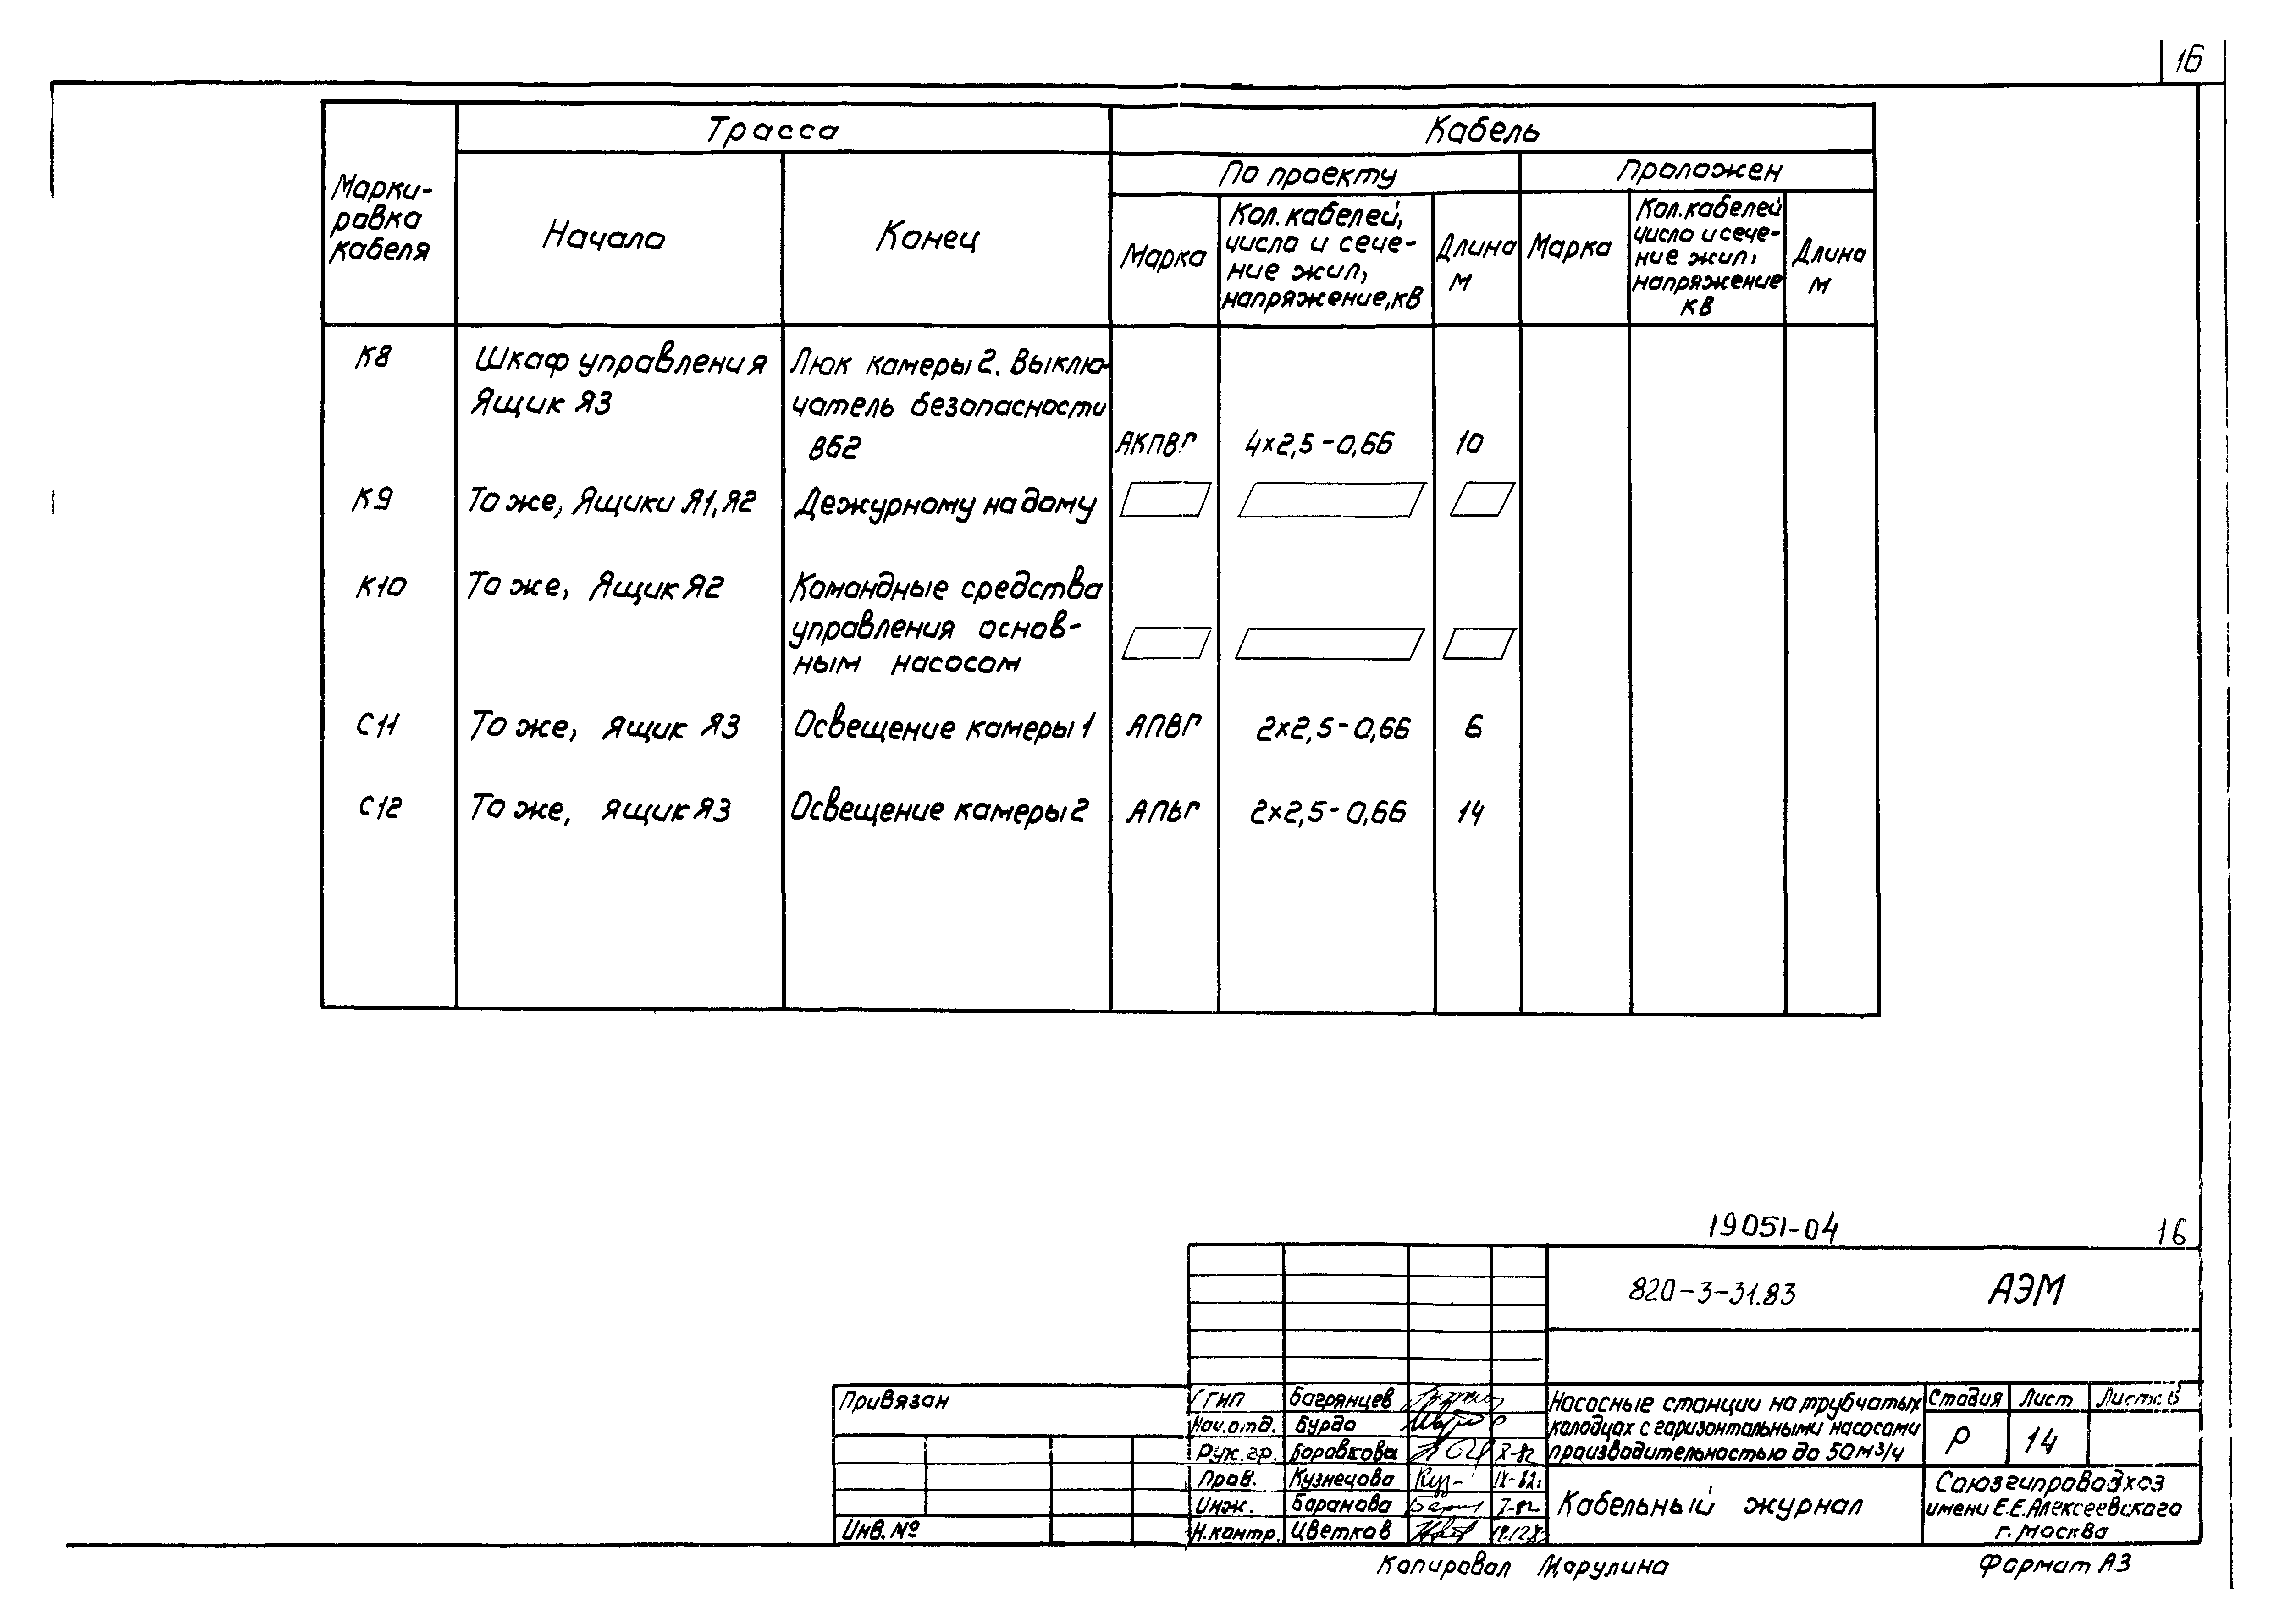 16
Трасса
Кабель
Марки-
ровка
кабеля
Начало
Конец
По проекту
Проложен
Марка
Кол. кабелей,
число и сече-
ние жил,
напряжение, кВ
Длина
м
Марка
Кол. кабелей
число и сече-
ние жил,
напряжение
кВ
Длина
м
К8 Шкаф управления Люк камеры 2. Выклю-
Ящик Я3 чатель безопасности
ВБ2 АКПВГ 4×2,5-0,66 10
К9 То же, Ящики Я1, Я2 Дежурному на дому
К10 То же, Ящик Я2 Командные средства
управления основ-
ным насосом
С11 То же, ящик Я3 Освещение камеры 1 АПВГ 2×2,5-0,66 6
С12 То же, ящик Я3 Освещение камеры 2 АПВГ 2×2,5-0,66 14
19051-04 16
820-3-31.83 АЭМ
Привязан
Инв. №
ГИП Багрянцев
Нач. отд. Бурдо
Рук. гр. Боровкова X-82
Пров. Кузнецова IX-82г
Инж. Баранова
Н. контр. Цветков
Насосные станции на трубчатых
колодцах с горизонтальными насосами
производительностью до 50 м3/ч
Стадия Лист Листов
Р 14
Кабельный журнал
Союзгипроводхоз
имени Е.Е. Алексеевского
г. Москва
Копировал Марулина
Формат А3